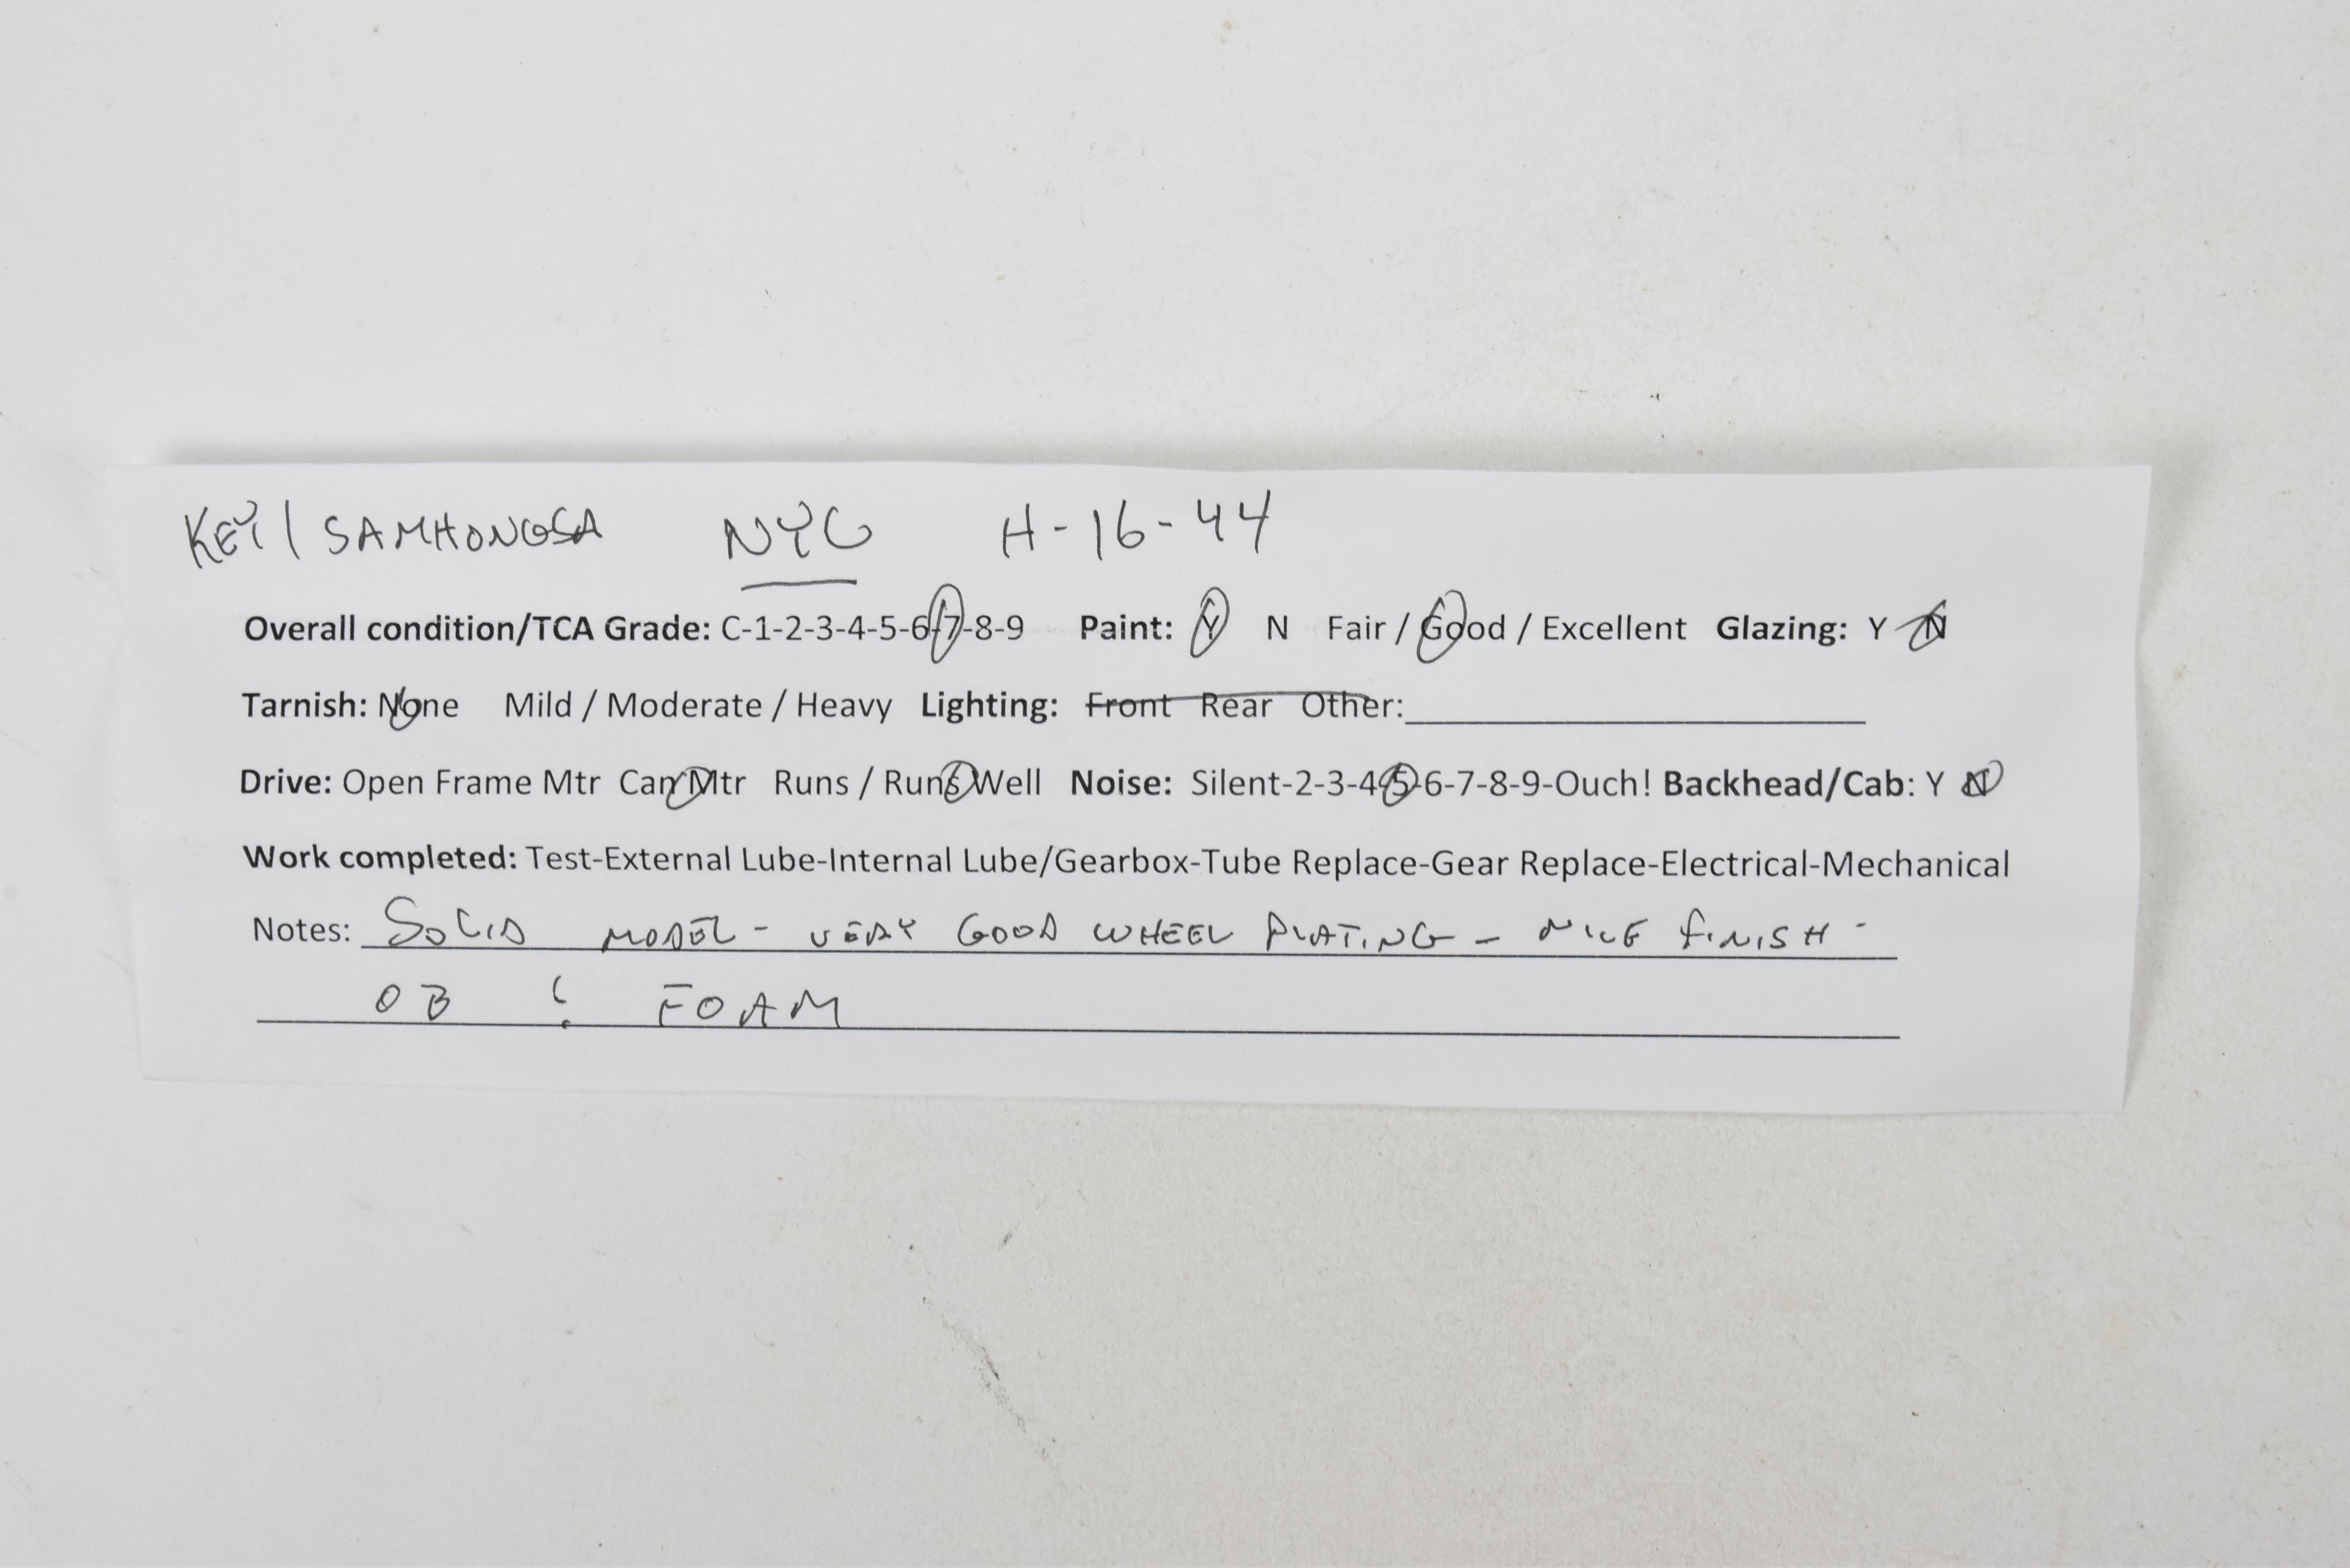 KEY / SAMHONGSA NYC H-16-44
Overall condition/TCA Grade: C-1-2-3-4-5-6-7-8-9 Paint: Y N Fair / Good / Excellent Glazing: Y N
Tarnish: None Mild / Moderate / Heavy Lighting: Front Rear Other:
Drive: Open Frame Mtr Can Mtr Runs / Runs Well Noise: Silent-2-3-4-5-6-7-8-9-Ouch! Backhead/Cab: Y N
Work completed: Test-External Lube-Internal Lube/Gearbox-Tube Replace-Gear Replace-Electrical-Mechanical
Notes: SOLID MODEL - VERY GOOD WHEEL PLATING - NICE FINISH -
OB & FOAM